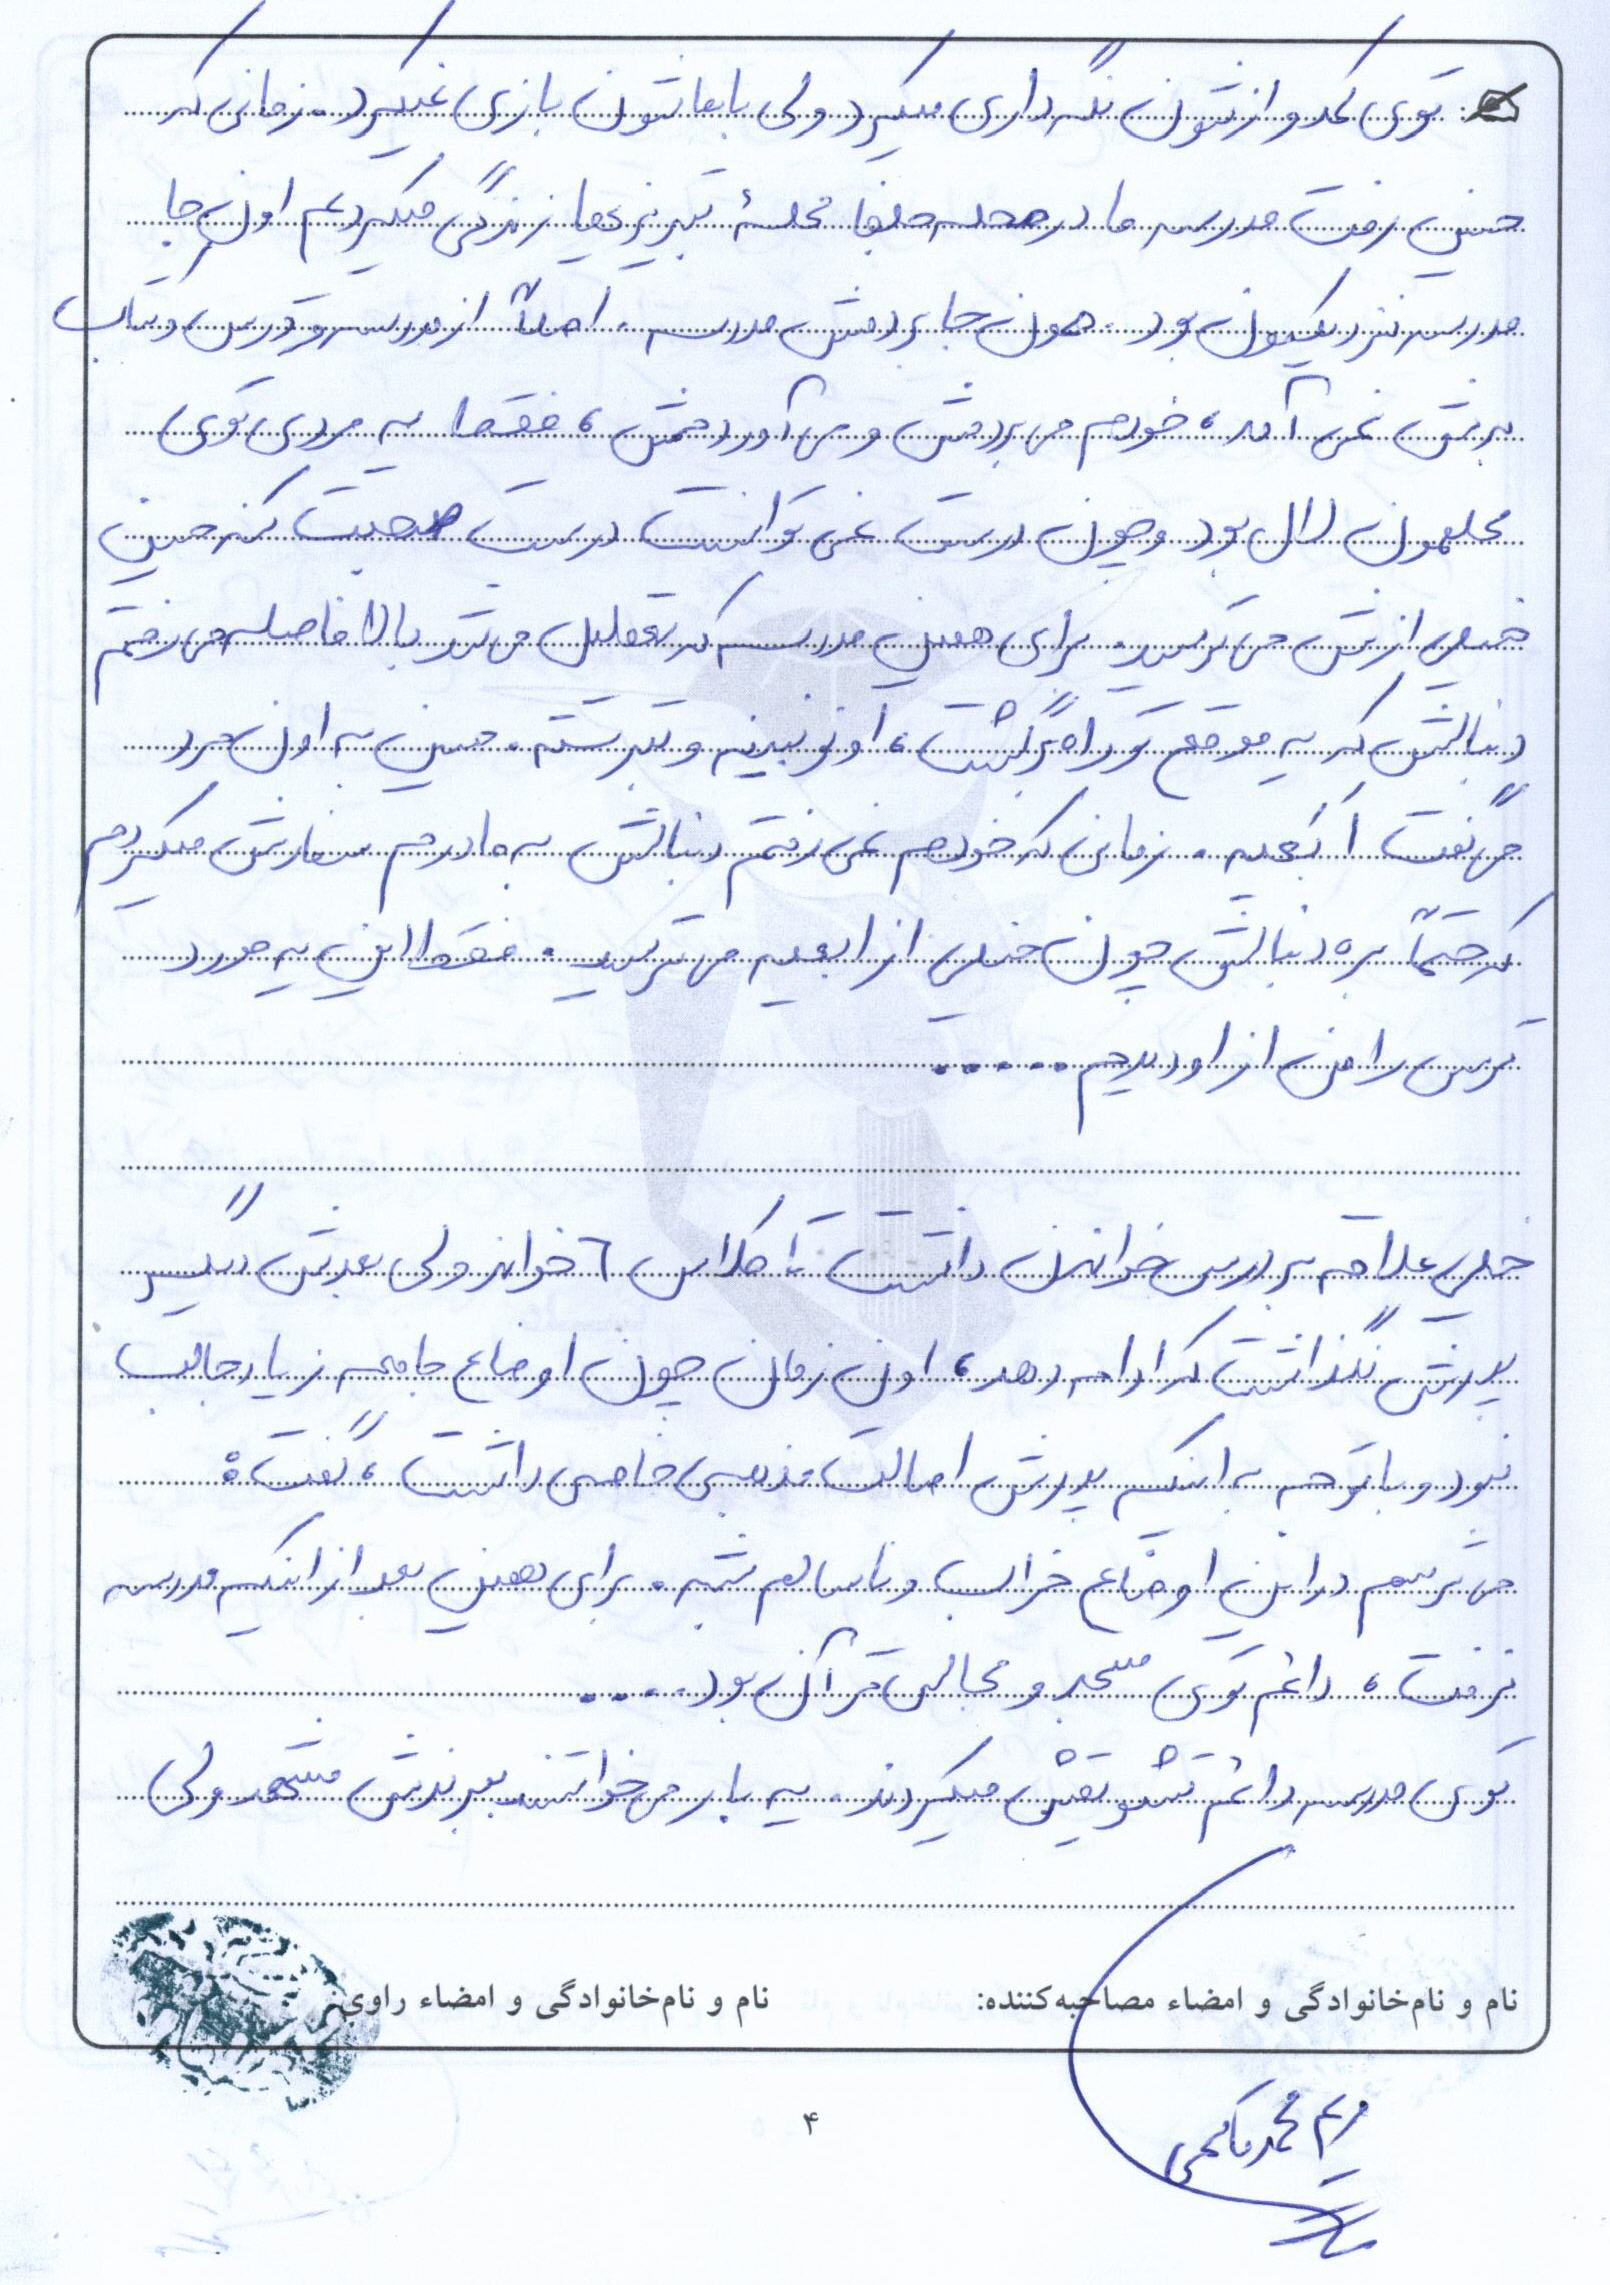 توی کمد و ازشون نگه داری میکرد ولی باهاشون بازی نمیکرد. زمانی که
حسین رفت مدرسه ما در محله جلفا محلهٔ تبریزیها زندگی میکردیم اون جا
مدرسه نزدیکیمون بود. همون جا بردمش مدرسه. اصلاً از مدرسه و درس و کتاب
بدش نمی آمد، خودم می بردمش و می آوردمش، فقط یه مردی توی
محلمون لال بود و چون درست نمی توانست درست صحبت کنه حسین
خیلی ازش می ترسید. برای همین مدرسه که تعطیل می شد بلا فاصله می رفتم
دنبالش که یه موقع تو راه برگشت، اونو نبینه و نترسته. حسین به اون مرد
می گفت ابعیه. زمانی که خودم نمی رفتم دنبالش به مادرم سفارش میکردم
که حتماً بره دنبالش چون خیلی از ابعیه می ترسید. فقط این یه مورد
ترس را من از او دیدم.....
خیلی علاقه به درس خواندن داشت تا کلاس ٦ خواند ولی بعدش دیگر
پدرش نگذاشت که ادامه دهد، اون زمان چون اوضاع جامعه زیاد جالب
نبود و با توجه به اینکه پدرش اصالت مذهبی خاصی داشت، گفت:
می ترسم در این اوضاع خراب و ناسالم بشه. برای همین بعد از اینکه مدرسه
نرفت، دائم توی مسجد و مجالس قرآن بود....
توی مدرسه دائم تشویقش میکردند. یه بار می خواستند ببرندش مشهد ولی
نام و نام‌خانوادگی و امضاء مصاحبه‌کننده: نام و نام‌خانوادگی و امضاء راوی:
۴
مریم محمد